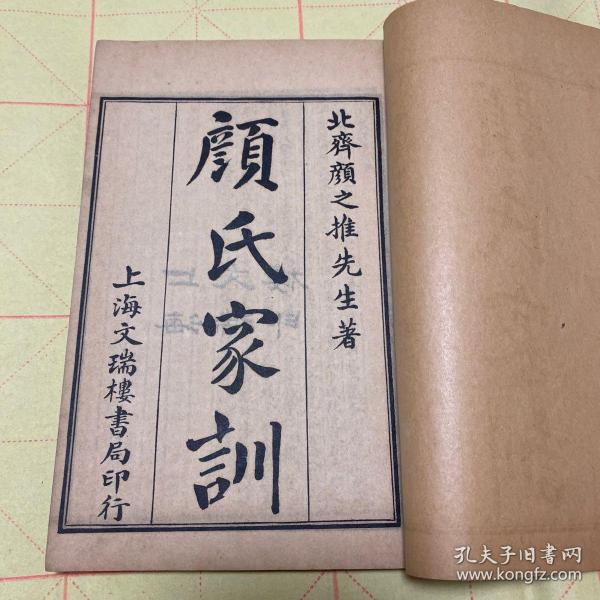 北齊顏之推先生著
顏氏家訓
上海文瑞樓書局印行
孔夫子旧书网
www.kongfz.com